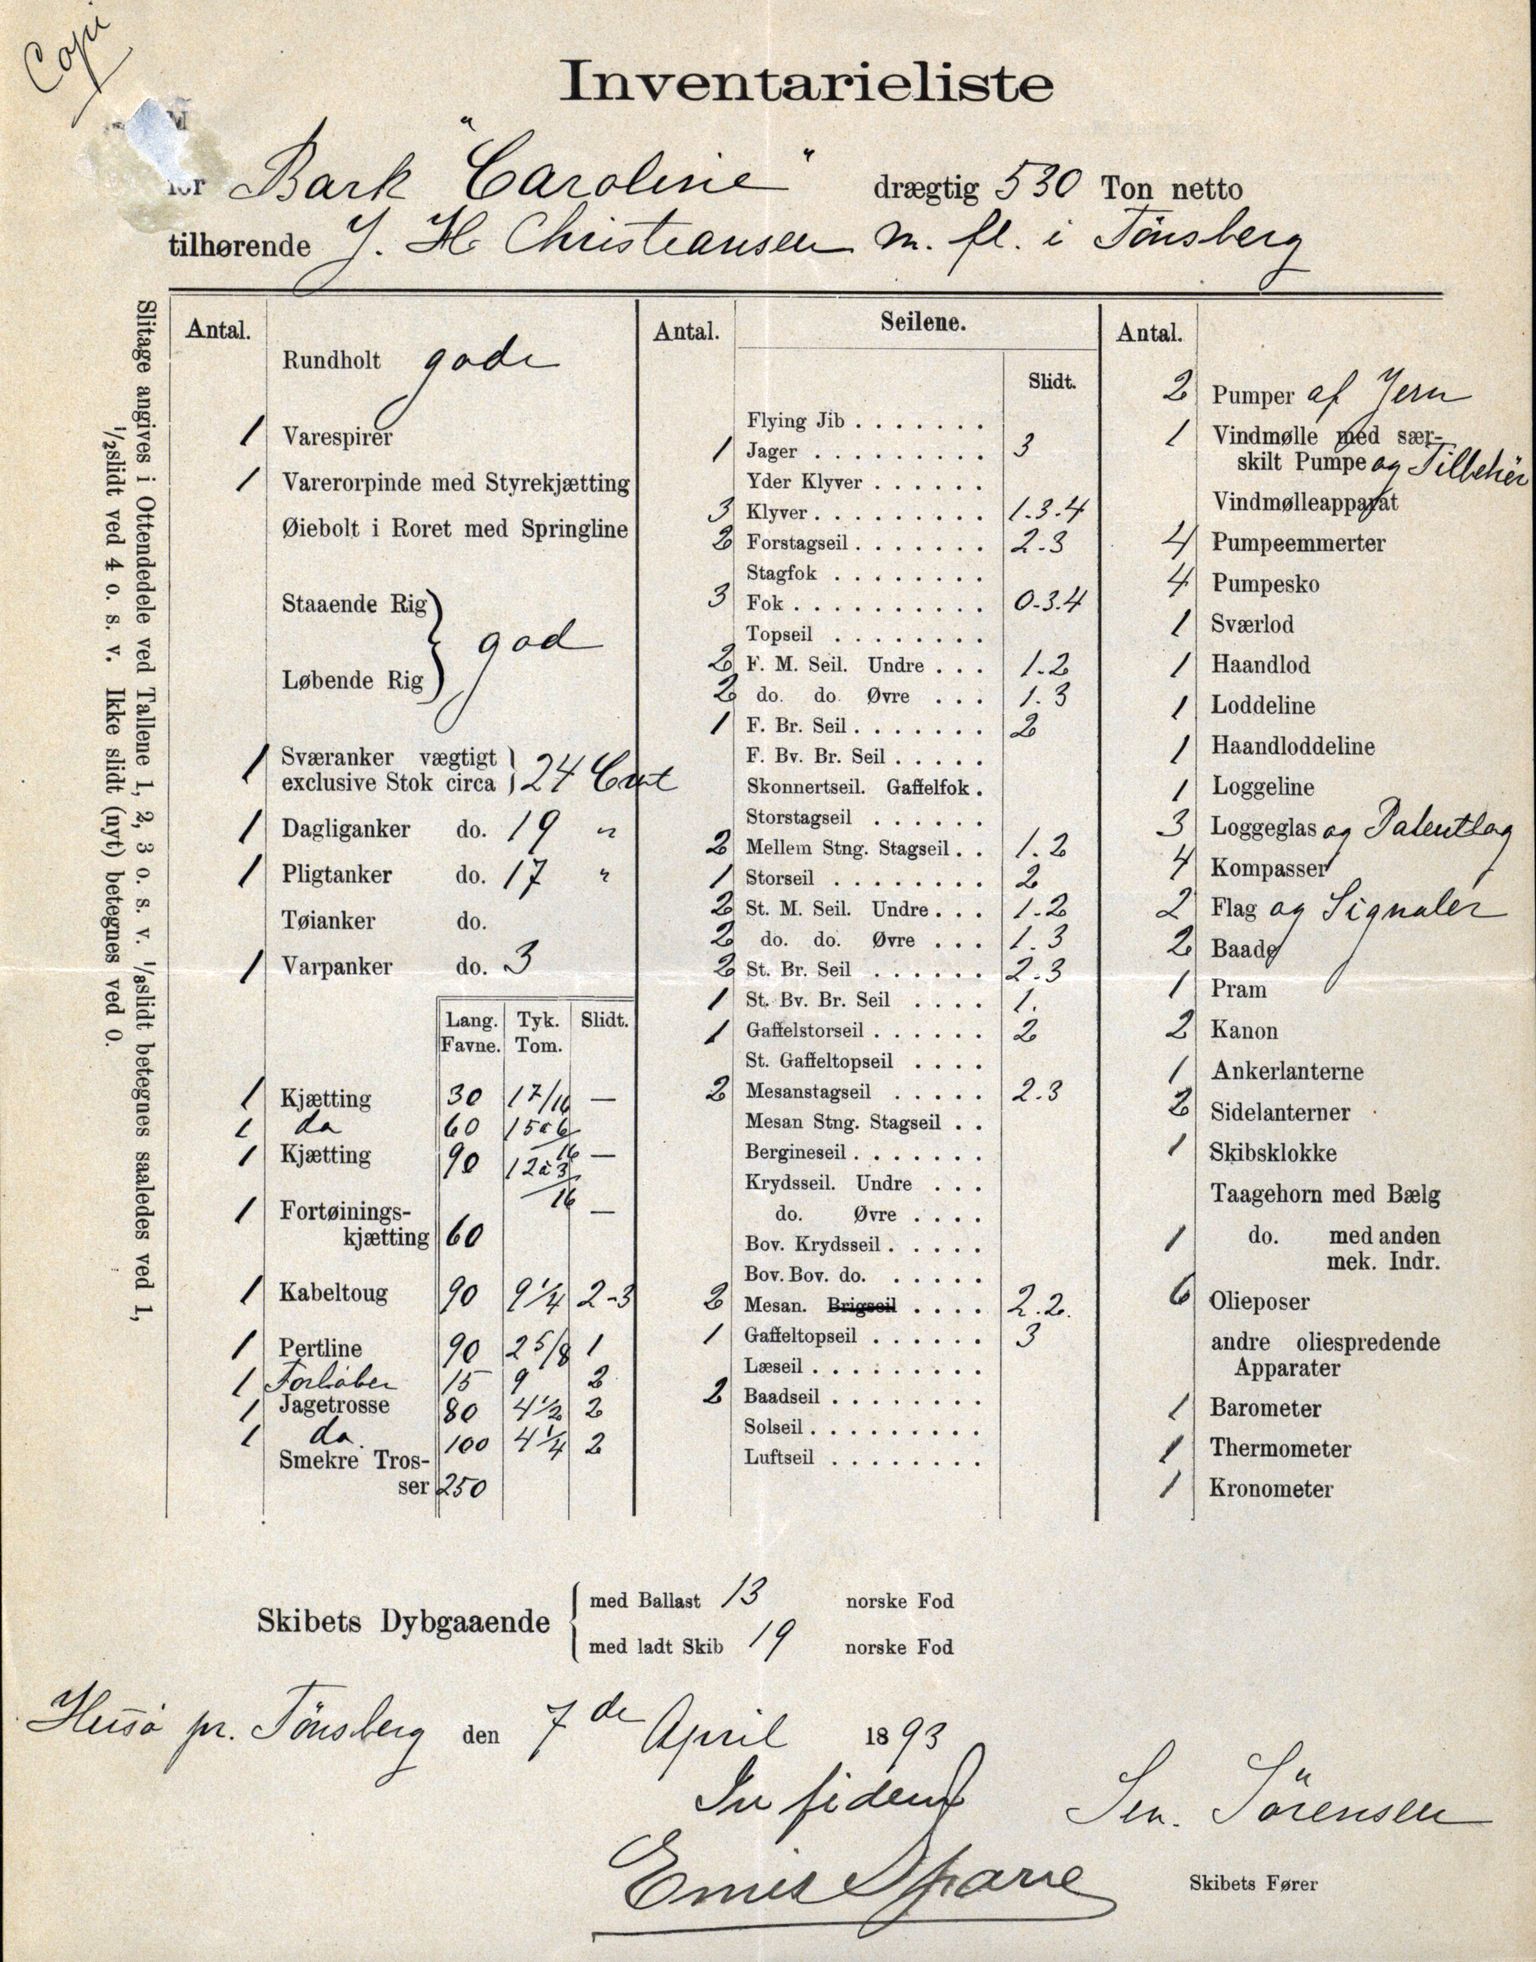 Copi
Inventarieliste
for Bark "Caroline" drægtig 530 Ton netto
tilhørende J. H. Christiansen m. fl. i Tönsberg
Slitage angives i Ottendedele ved Tallene 1, 2, 3 o. s. v. ⅛slidt betegnes saaledes ved 1,
½slidt ved 4 o. s. v. Ikke slidt (nyt) betegnes ved 0.
Antal.
Rundholt gode
1 Varespirer
1 Varerorpinde med Styrekjætting
Øiebolt i Roret med Springline
Staaende Rig
god
Løbende Rig
1 Sværanker vægtigt
exclusive Stok circa 24 Cwt
1 Dagliganker do. 19 "
1 Pligtanker do. 17 "
Tøianker do.
1 Varpanker do. 3
Lang. Tyk. Slidt.
Favne. Tom.
1 Kjætting 30 17/16 —
1 do 60 15 à 6/16
1 Kjætting 90 12 à 3/16 —
1 Fortøinings- —
kjætting 60
1 Kabeltoug 90 9 1/4 2-3
1 Pertline 90 2 5/8 1
1 Forløber 15 9 2
1 Jagetrosse 80 4 1/2 2
1 do. 100 4 1/4 2
Smekre Tros-
ser 250
Antal. Seilene.
Slidt.
Flying Jib . . . . . . .
1 Jager . . . . . . . . . 3
Yder Klyver . . . . . .
3 Klyver. . . . . . . . . 1.3.4
2 Forstagseil. . . . . . . 2-3
Stagfok . . . . . . . .
3 Fok. . . . . . . . . . 0-3.4
Topseil . . . . . . . .
2 F. M. Seil. Undre . . . 1.2
2 do. do. Øvre . . . 1.3
1 F. Br. Seil. . . . . . . 2
F. Bv. Br. Seil . . . . .
Skonnertseil. Gaffelfok .
Storstagseil . . . . . .
2 Mellem Stng. Stagseil. . 1.2
1 Storseil . . . . . . . . 2
2 St. M. Seil. Undre. . . 1-2
2 do. do. Øvre . . . 1.3
2 St. Br. Seil . . . . . . 2-3
1 St. Bv. Br. Seil . . . . 1.
1 Gaffelstorseil . . . . . . 2
St. Gaffeltopseil . . . .
2 Mesanstagseil . . . . . 2.3
Mesan Stng. Stagseil . .
Bergineseil. . . . . . .
Krydsseil. Undre . . .
do. Øvre . . . .
Bov. Krydsseil . . . . .
Bov. Bov. do. . . . . .
2 Mesan. Brigseil . . . . 2.2.
1 Gaffeltopseil . . . . . . 3
Læseil . . . . . . . . .
2 Baadseil . . . . . . . .
Solseil. . . . . . . . .
Luftseil . . . . . . . .
Antal.
2 Pumper af Jern
1 Vindmølle med sær-
skilt Pumpe og Tilbehör
Vindmølleapparat
4 Pumpeemmerter
4 Pumpesko
1 Sværlod
1 Haandlod
1 Loddeline
1 Haandloddeline
1 Loggeline
3 Loggeglas og Patentlog
4 Kompasser
2 Flag og Signaler
2 Baade
1 Pram
2 Kanon
1 Ankerlanterne
2 Sidelanterner
1 Skibsklokke
Taagehorn med Bælg
1 do. med anden
mek. Indr.
6 Olieposer
andre oliespredende
Apparater
1 Barometer
1 Thermometer
1 Kronometer
Skibets Dybgaaende
med Ballast 13 norske Fod
med ladt Skib 19 norske Fod
Husö pr. Tönsberg den 7de April 1893
In fidem
Sen. Sörensen
Skibets Fører